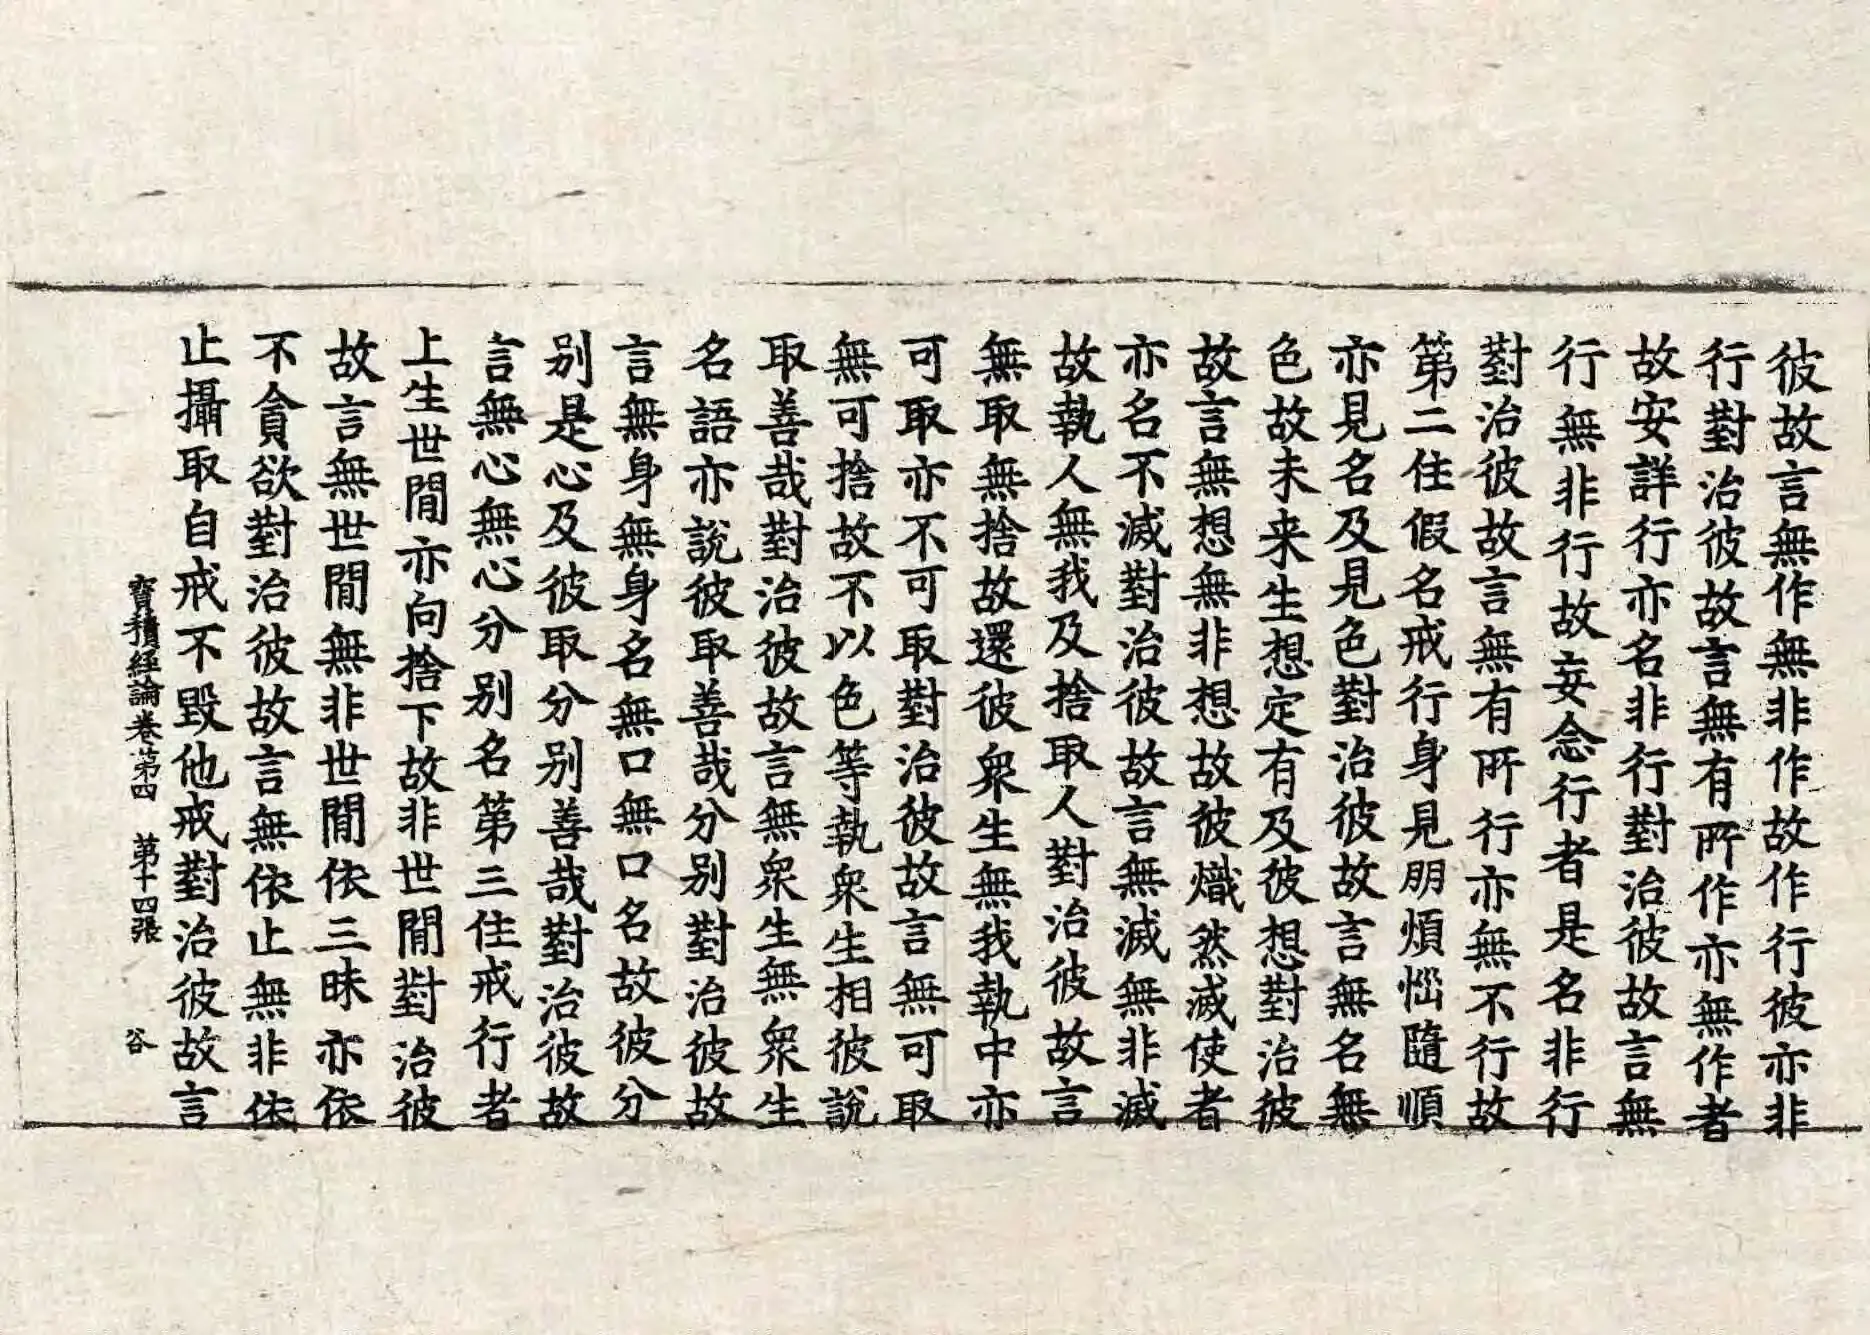 彼故言無作無非作故作行彼亦非
行對治彼故言無有所作亦無作者
故安詳行亦名非行對治彼故言無
行無非行故妄念行者是名非行
對治彼故言無有所行亦無不行故
第二住假名戒行身見朋煩惱隨順
亦見名及見色對治彼故言無名無
色故未来生想定有及彼想對治彼
故言無想無非想故彼熾然滅使者
亦名不滅對治彼故言無滅無非滅
故執人無我及捨取人對治彼故言
無取無捨故還彼衆生無我執中亦
可取亦不可取對治彼故言無可取
無可捨故不以色等執衆生相彼說
取善哉對治彼故言無衆生無衆生
名語亦說彼取善哉分别對治彼故
言無身無身名無口無口名故彼分
别是心及彼取分别善哉對治彼故
言無心無心分别名第三住戒行者
上生世間亦向捨下故非世間對治彼
故言無世間無非世間依三昧亦依
不貪欲對治彼故言無依止無非依
止攝取自戒不毀他戒對治彼故言
寶積經論卷第四 第十四張 谷